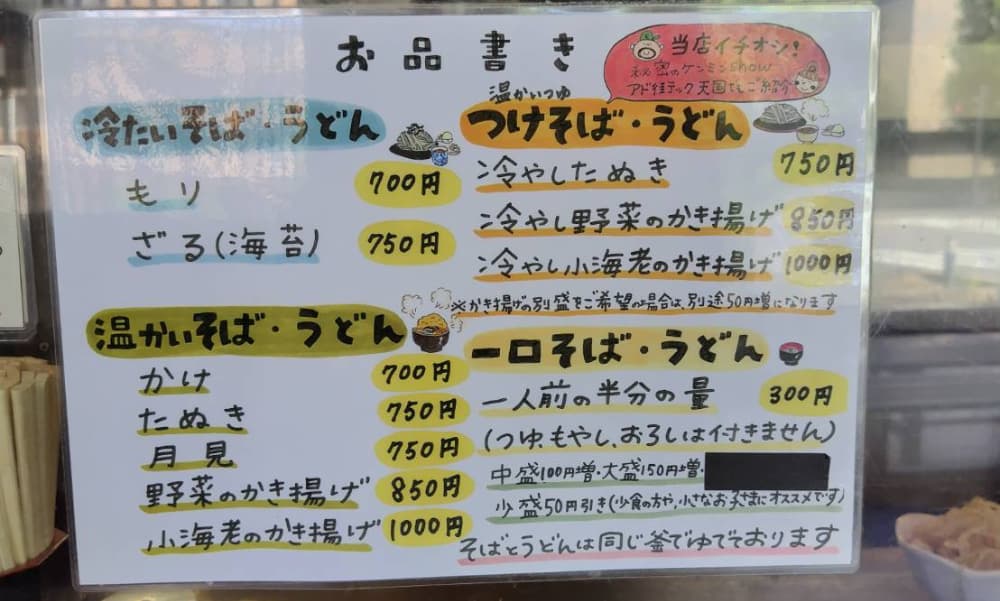 お品書き
当店イチオシ!
秘密のケンミンshow
アド街ック天国でもご紹介
冷たいそば・うどん
もり 700円
ざる(海苔) 750円
温かいそば・うどん
かけ 700円
たぬき 750円
月見 750円
野菜のかき揚げ 850円
小海老のかき揚げ 1000円
温かいつゆ
つけそば・うどん
冷やしたぬき 750円
冷やし野菜のかき揚げ 850円
冷やし小海老のかき揚げ 1000円
※かき揚げの別盛をご希望の場合は、別途50円増になります
一口そば・うどん
一人前の半分の量 300円
(つゆ、もやし、おろしは付きません)
中盛100円増・大盛150円増・
少盛50円引き(少食の方や、小さなお子さまにオススメです)
そばとうどんは同じ釜でゆでております